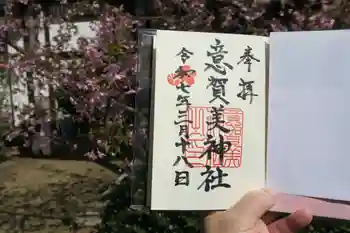 奉拝
意賀美神社
令和七年三月十八日